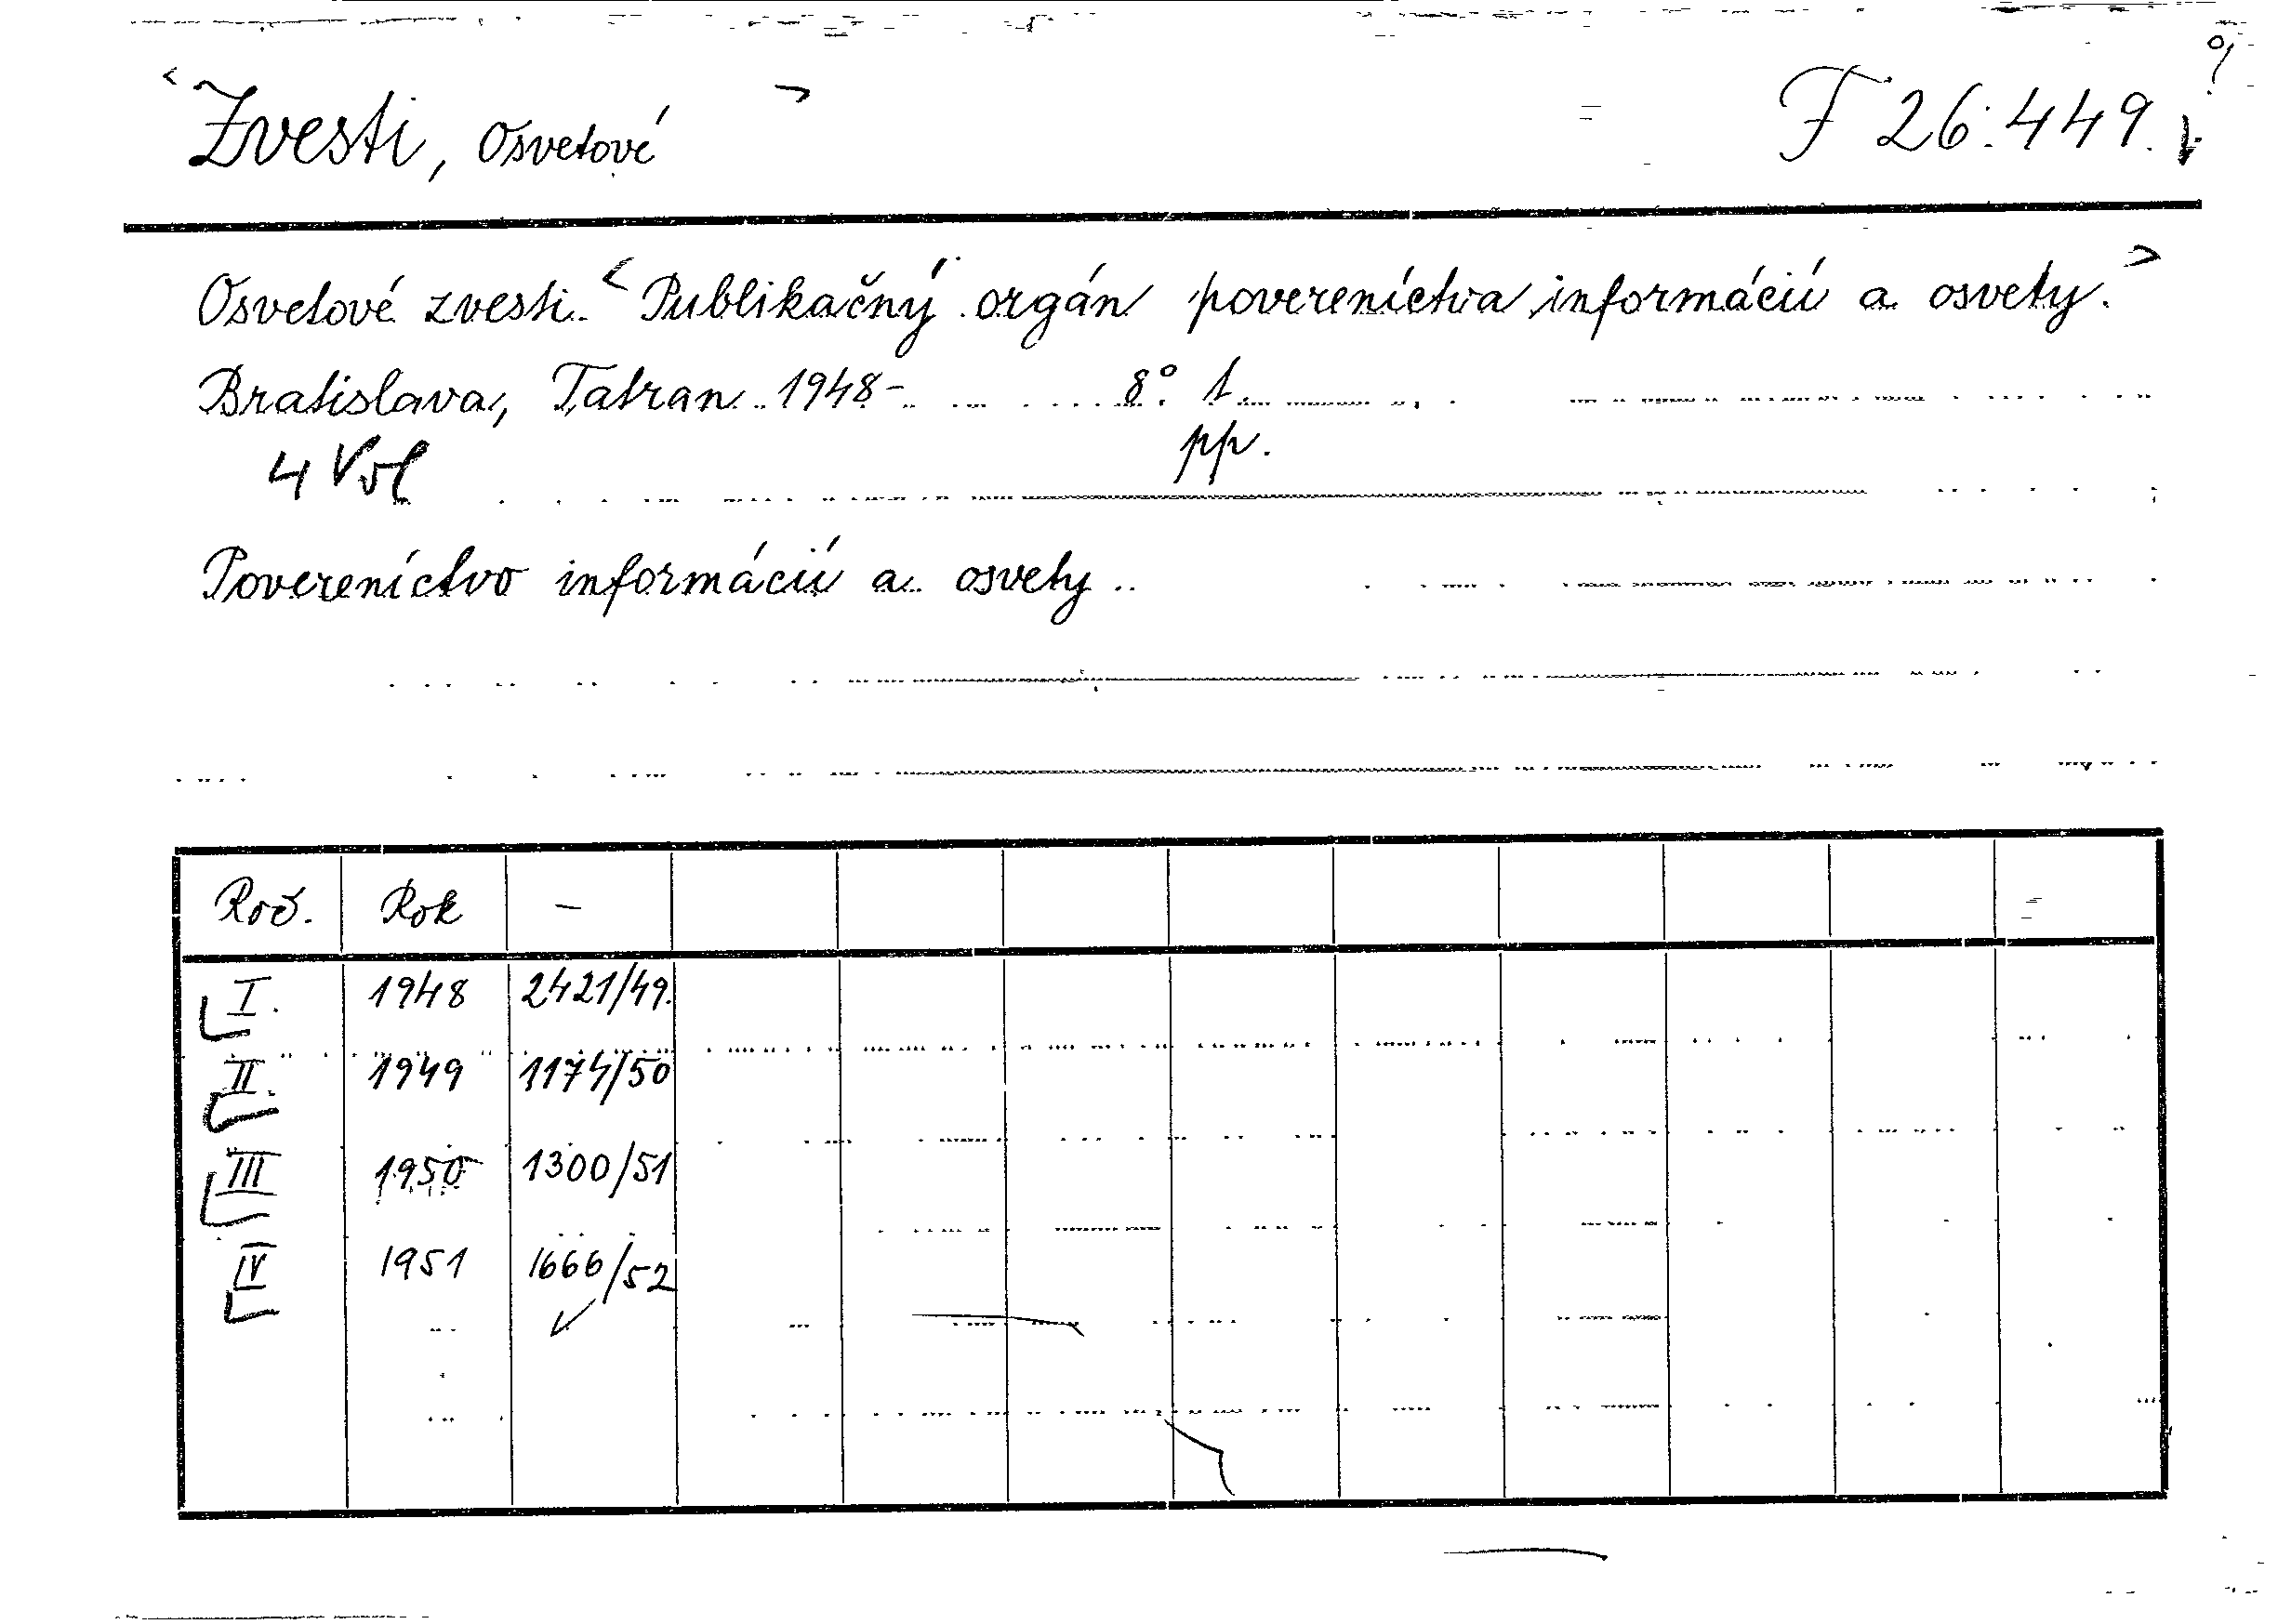 < Zvesti, Osvetové > F 26.449.
Osvetové zvesti. <Publikačný orgán povereníctva informácií a osvety.>
Bratislava, Tatran 1948- 8° 1.
4 Vol pp.
Povereníctvo informácií a osvety.
Roč. Rok -
I. 1948 2421/49.
II. 1949 1174/50
III 1950 1300/51
IV 1951 1666/52